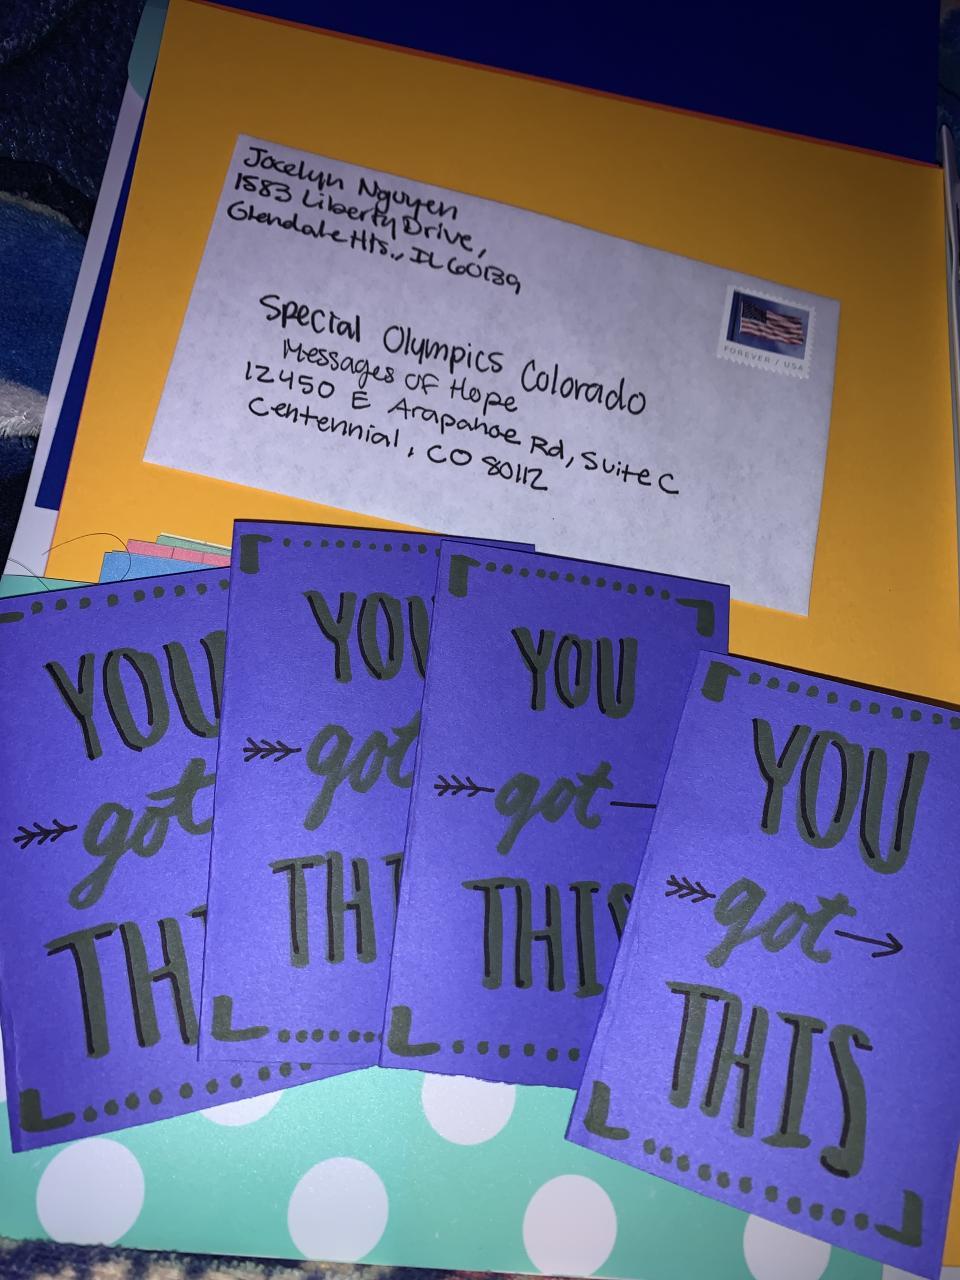 Jocelyn Nguyen
1583 Liberty Drive,
Glendale Hts., IL 60139
FOREVER / USA
Special Olympics Colorado
Messages of Hope
12450 E Arapahoe Rd, Suite C
Centennial, CO 80112
YOU
got
TH
YOU
got
TH
YOU
got
THIS
YOU
got
THIS